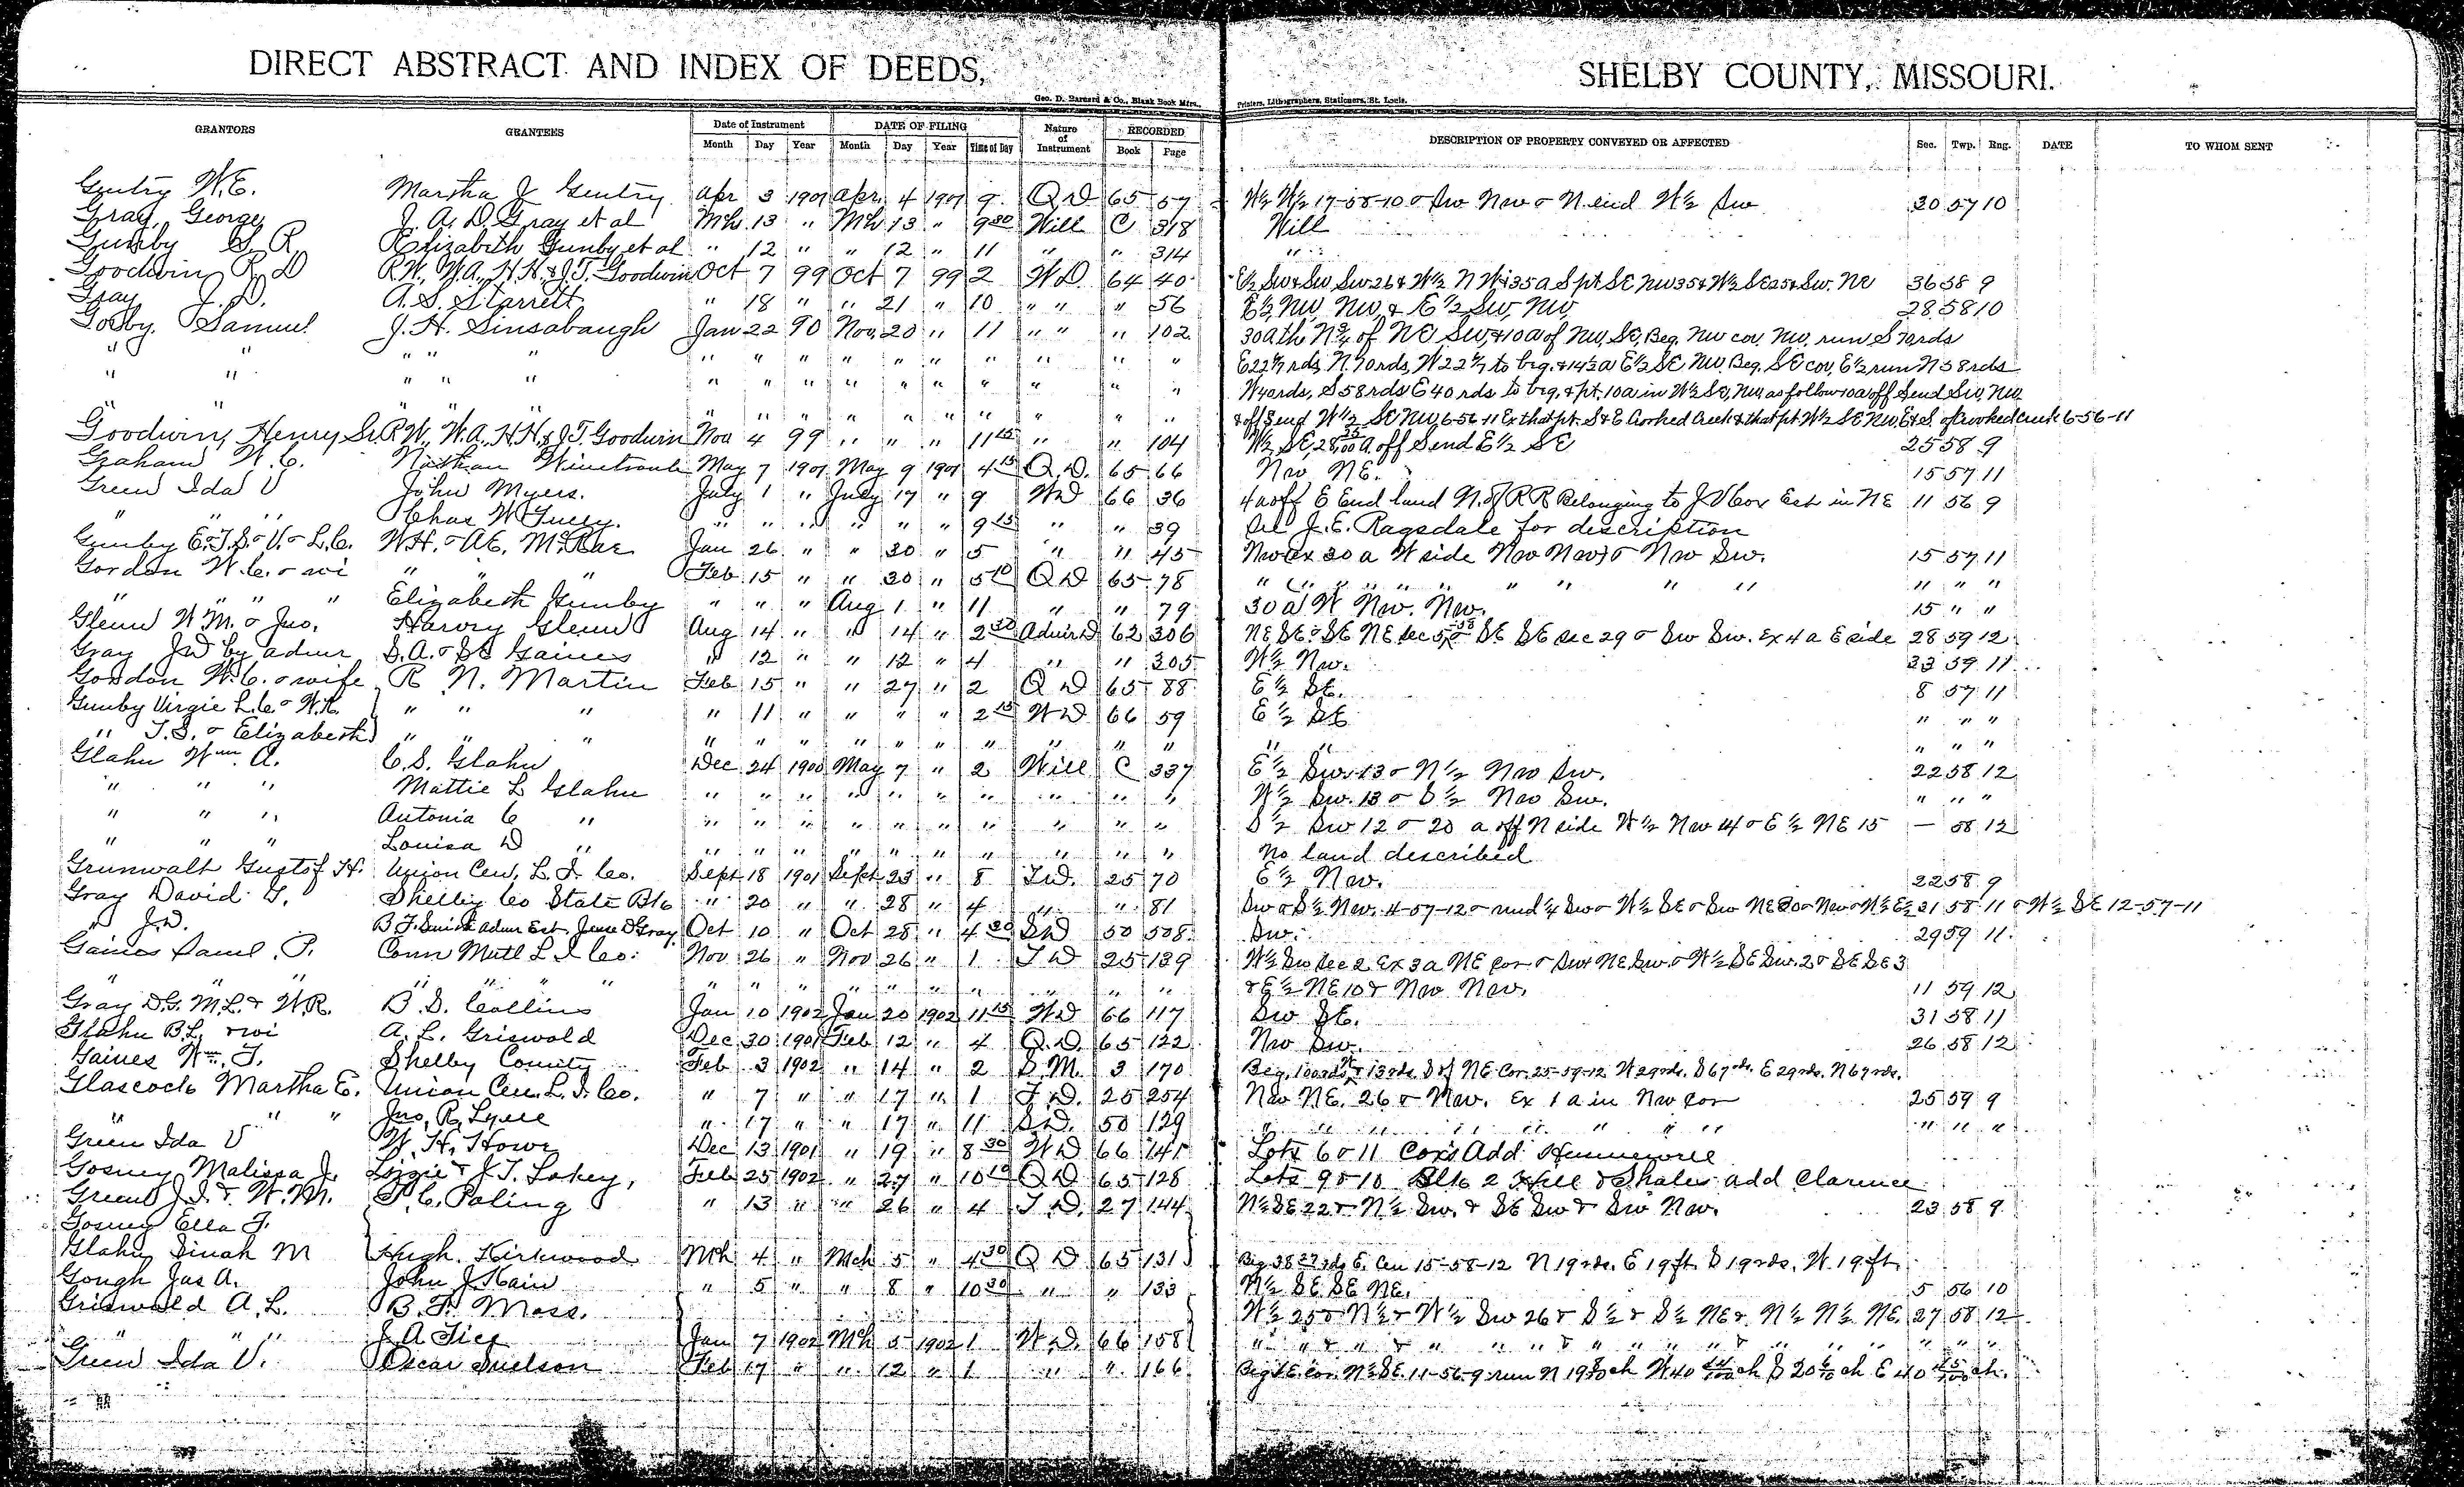 DIRECT ABSTRACT AND INDEX OF DEEDS, SHELBY COUNTY, MISSOURI.
Geo. D. Barnard & Co., Blank Book Mfrs., Printers, Lithographers, Stationers, St. Louis.
GRANTORS GRANTEES Date of Instrument DATE OF FILING Nature of Instrument RECORDED DESCRIPTION OF PROPERTY CONVEYED OR AFFECTED Sec. Twp. Rng. DATE TO WHOM SENT
Month Day Year Month Day Year Time of Day Book Page
Gentry W.E. Martha J Gentry Apr 3 1901 Apr 4 1901 9 Q D 65 57 W½ W½ 17-58-10 & Sw Nw & N end W½ Sw 20 57 10
Gray George J. A. D. Gray et al Mch 13 " Mch 13 " 9 30 Will C 318 Will
Gunby S. R. Elizabeth Gunby et al " 12 " " 12 " 11 " " 314 "
Goodwin R D R.W., W.A., H.H. & J.T. Goodwin Oct 7 99 Oct 7 99 2 W D 64 40 E½ Sw & Sw Sw 26 & W½ N W & 35 a S pt SE NW 35 & W½ SE 25 & Sw. NE 36 58 9
Gray J. D. A. S. Starrett " 18 " " 21 " 10 " " " 56 E½ NW, NW, & E½ SW, NW, 28 58 10
Gosby Samuel J. H. Sinsabaugh Jan 22 90 Nov 20 " 11 " " " 102 30 a th N¾ of NE SW, & 10 a of NW, SE, Beg. NW cor. NW, run S 70 rds
" " " " " " " " " " " " " " " " E 22 6/7 rds, N. 70 rds, W 22 6/7 to beg. & 14½ a E½ SE NW, Beg. SE cor, E½ run N 58 rds
" " " " " " " " " " " " " " " W 40 rds, S 58 rds E 40 rds to beg, & pt. 10 a in W½ SE, NW, as follow 10 a off S end SW, NW,
" " " " " " " " " " " " " " & off S end W½ SE NW, 6-56-11 Ex that pt. S & E Crooked Creek & that pt. W½ SE NW, E & S. of Crooked Creek 6-56-11
Goodwin, Henry Sr. R.W., W.A., H.H. & J.T. Goodwin Nov 4 99 " " " 11 15 " " 104 W½ SE, 28 25/100 a off S end E½ SE 25 58 9
Graham W. C. Nathan Winetroub May 7 1901 May 9 1901 4 15 Q.D. 65 66 Nw NE. 15 57 11
Green Ida V John Myers. July 1 " July 17 " 9 WD 66 36 4 a off E End land N. of R R Belonging to J V Cox Est in NE 11 56 9
" " " Chas W " " " " " " 9 15 " " 39 See J. E. Ragsdale for description
Gunby E. & J.S. & V. & L.C. W.H. & A.E. McRae Jan 26 " " 30 " 5 " " 45 Nw (Ex 30 a W side Nw Nw) & Nw Sw. 15 57 11
Gordon W. C. & wi " " " Feb 15 " " 30 " 5 10 Q D 65 78 " " " " " " " " " " " "
" " " " Elizabeth Gunby " " " Aug 1 " 11 " " 79 30 a W Nw. Nw. 15 " "
Glenn W M. & Jno. Harvey Glenn Aug 14 " " 14 " 2 30 Admr D 62 306 NE SE & SE NE Sec 5-58 & SE SE Sec 29 & Sw Sw. Ex 4 a E side 28 59 12
Gray JD by admr S. A. & SE Gaines " 12 " " 12 " 4 " " 305 W½ Nw. 33 59 11
Gordon W. C. & wife R N. Martin Feb 15 " " 27 " 2 Q D 65 88 E½ SE. 8 57 11
Gunby Virgie L.C. & W.R. " " " " 11 " " " " 2 15 W D 66 59 E½ SE " " "
" J.S. & Elizabeth " " " " " " " " " " " " " " " " " "
Glahn Wm A. C. S. Glahn Dec 24 1900 May 7 " 2 Will C 337 E½ Sw. 13 & N½ Nw Sw. 22 58 12
" " " Mattie L Glahn " " " " " " " " " " W½ Sw. 13 & S½ Nw Sw. " " "
" " " Antonia C " " " " " " " " " " " S½ Sw 12 & 20 a off N side W½ Nw 14 & E½ NE 15 — 58 12
" " " Louisa D " " " " " " " " " " " No land described
Grunwalt Gustof H. Union Cen, L. I. Co. Sept 18 1901 Sept 23 " 8 T.D. 25 70 E½ Nw. 22 58 9
Gray David G. Shelby Co State Bk " 20 " " 28 " 4 " " 81 Sw & S½ Nw. 4-57-12 & und ¼ Sw & W½ SE & Sw NE 30 & Nw & W½ E½ 31 58 11 & W½ SE 12-57-11
" J.D. B F. Smith admr Est Jesse D Gray Oct 10 " Oct 28 " 4 30 S D 50 508 Sw. 29 59 11
Gaines Saml. P. Conn Mutl L I Co. Nov 26 " Nov 26 " 1 T D 25 139 W½ Sw Sec 2 Ex 3 a NE cor & Sw & NE Sw. & W½ SE Sw. 2 & SE SE 3
" " " " " " " " " " " " " " " " & E½ NE 10 & Nw Nw. 11 59 12
Gray D.G. M.L. & W.R. B. D. Collins Jan 10 1902 Jan 20 1902 11 15 WD 66 117 Sw SE. 31 58 11
Glahn B.L. & wi A. L. Griswold Dec 30 1901 Feb 12 " 4 Q.D. 65 122 Nw Sw. 26 58 12
Gaines Wm. J. Shelby County Feb 3 1902 " 14 " 2 S.M. 3 170 Beg. 100 rds W & 13 rds. S of NE Cor. 25-59-12 W 29 rds. S 67 rds. E 29 rds. N 67 rds.
Glascock Martha E. Union Cen. L. I. Co. " 7 " " 17 " 1 T D. 25 254 Nw NE. 26 & Nw. Ex 1 a in Nw Cor 25 59 9
" " " Jno. R. Lyell " 17 " " 17 " 11 S.D. 50 129 " " " " " " " " " " "
Green Ida V W. H. Howe Dec 13 1901 " 19 " 8 30 W D 66 141 Lots 6 & 11 Cox's Add Hunnewell
Gosney Malissa J. Lizzie & J. T. Lokey, Feb 25 1902 " 27 " 10 10 Q D 65 128 Lots 9 & 10 Blk 2 Hill & Shales add Clarence
Green J. I. & W. M. P. C. Poling " 13 " " 26 " 4 T.D. 27 144 N½ SE 22 & N½ Sw. & SE Sw & Sw Nw. 23 58 9
Gosney Ella J.
Glahn Dinah M Hugh Kirkwood Mch 4 " Mch 5 " 4 30 Q D 65 131 Beg 38 rds E. Cen 15-58-12 N 19 rds. E 19 ft. S 19 rds. W. 19 ft.
Gough Jas A. John J Kain " 5 " " 8 " 10 30 " " 133 N½ SE SE NE. 5 56 10
Griswold A. L. B. F. Moss. W½ 25 & N½ & W½ Sw 26 & S½ & S½ NE & N½ N½ NE. 27 58 12
" " " J A Tice Jan 7 1902 Mch 5 1902 1 W.D. 66 158 " " & " & " " " " & " " & " " " " " "
Green Ida V. Oscar Suelson Feb 17 " " 12 " 1 " " 166 Beg SE cor. N½ SE. 11-56-9 run N 19 ch W 40 ch S 20 ch E 40 ch.